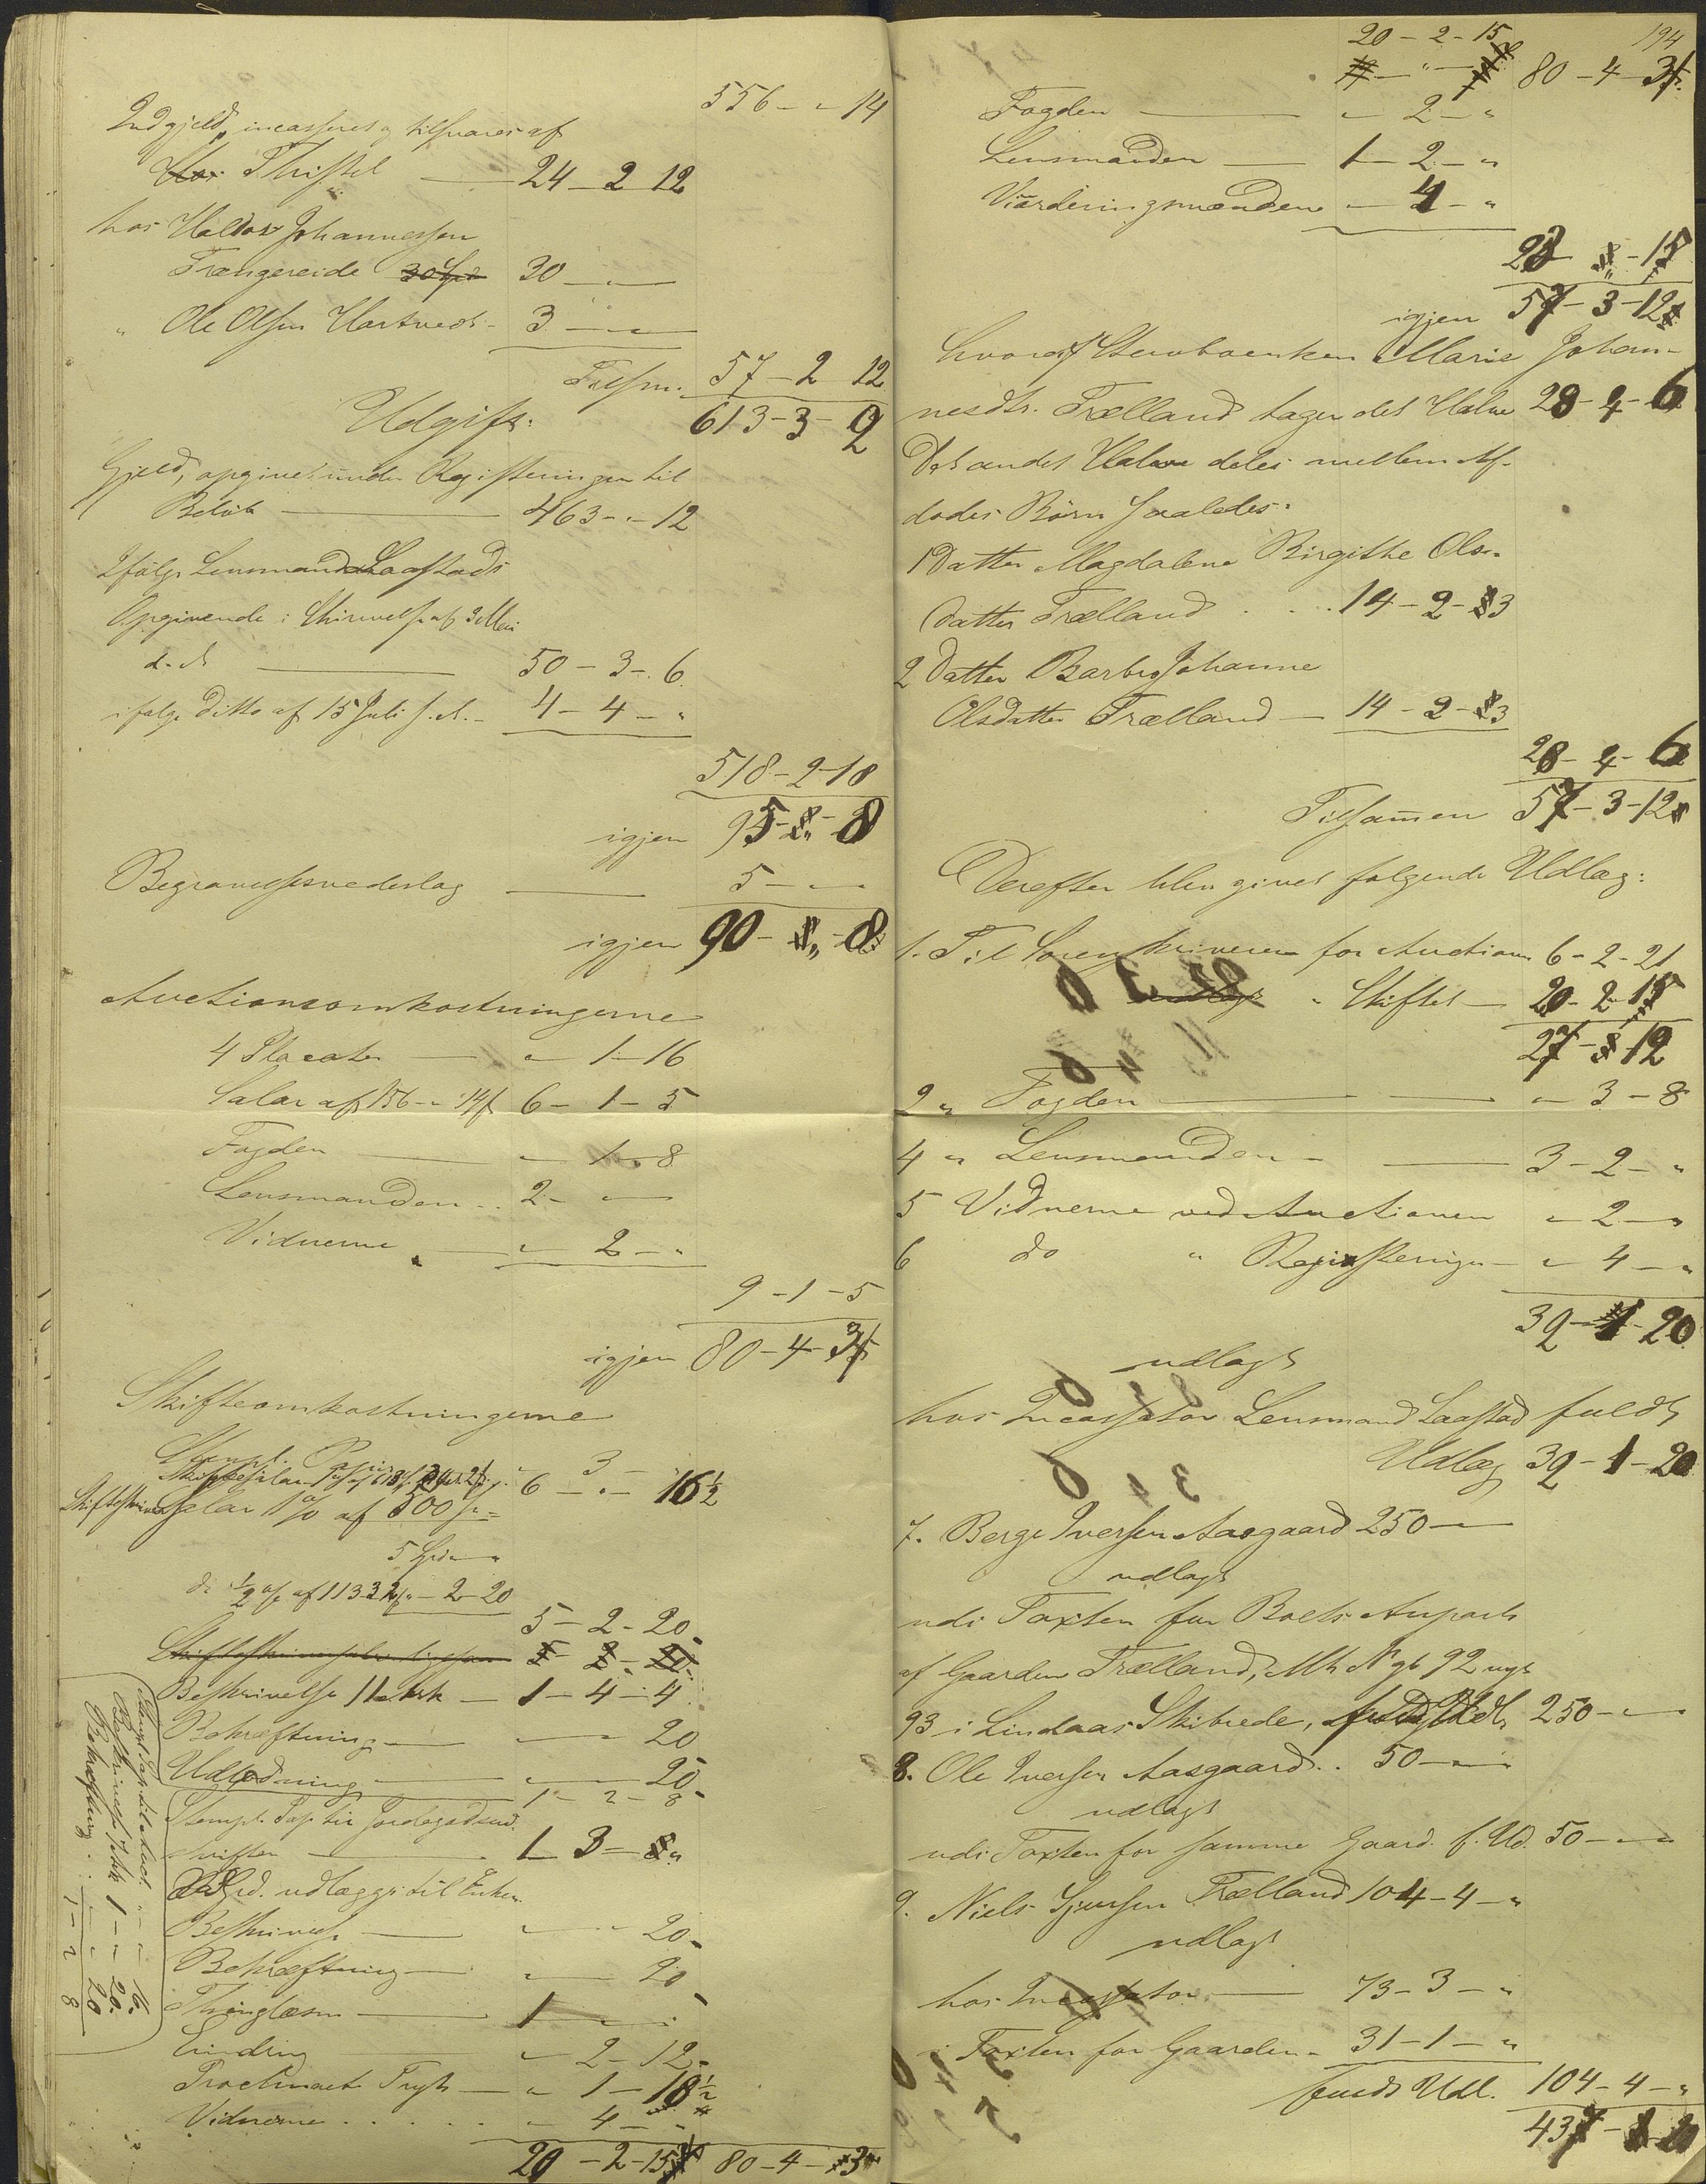 556 - " 14
Indgjeld, incasseret og tilsvares af
Thistel 24 - 2 12
hos Haldor Johannessen
Trængereide 30 - "
" Ole Olsen Hartvedt - 3 - "
Tilsm. 57 - 2 12
Udgift. 613 - 3 - 2
Gjeld, opgivet under Registeringen til
Beløb 463 - " - 12
Ifølge Lensmand Laastads
Opgivende i Skrivelse af 3 Mai
d. A 50 - 3 - 6
ifølge Ditto af 15 Juli s. A. - 4 - 4 - "
518 - 2 - 18
igjen 95 - " - 8
Begravelsesvederlag 5 - "
igjen 90 - " - 8
Auctionsomkostningerne
4 Placater " 1 - 16
Salar af 156 - " 14 s 6 - 1 - 5
Fogden " 1 - 8
Lensmanden .. 2 - "
Vidnerne " 2 - "
9 - 1 - 5
igjen 80 - 4 - 3
Skifteomkostningerne
Stempl. Papir " 3 -
6 - " - 16½
Salar 1% af 500 Spd =
5 Spd "
do ½ % af 113 - 2 - 20
5 - 2 - 20
Beskrivelse 11 Ark - 1 - 4 - 4
Bekræftning " 20
Udlodning " 20
1 - 2 - 8
Stempl. Pap til Jordegodsud-
skriften 1 3 - "
udlægges til Enken
Beskrivelse " 20
Bekræftning " 20
Thinglæsn 1 "
Erindring " 2 - 12
Proclamaets Trykn " 1 - 18½
Vidnerne . . . . . " 4 - "
20 - 2 - 15 80 - 4 - 3
Stempl Pap til Auct. " - " 16.
Beskrivelse 7 Ark 1 - " 20.
Bekræftning . " " 20
1 - 2 8
194
20 - 2 - 15
80 - 4 - 3
Fogden " 2 - "
Lensmanden 1 - 2 - "
Vurderingsmændene " 4 - "
23 " - 15
igjen 57 - 3 - 12
hvoraf Stervboenken Marie Johan-
nesdtr. Trælland tager det Halve 28 - 4 - 6
Det andet Halve deles mellem Af-
dødes Børn saaledes:
1 Datter Magdalene Birgithe Ols-
datter Trælland . . . 14 - 2 - 3
2 Datter Barbro Johanne
Olsdatter Trælland 14 - 2 - 3
28 - 4 - 6
Tilsammen 57 - 3 - 12
Derefter blev givet følgende Udlæg:
1. Til Sorenskriveren for Auctionen 6 - 2 - 21
" Skiftet 20 - 2 - 15
27 - " 12
2 " Fogden " 3 - 8
4 " Lensmanden - 3 - 2 - "
5 Vidnerne ved Auctionen " 2 - "
6 do " Registeringen - " 4 - "
32 - 1 - 20
udlagt
hos Incassator Lensmand Laastad fuldt
Udlæg 32 - 1 - 20
7. Berge Iversen Aasgaard 250 - "
udlagt
udi Taxten for Boets Anpart
af Gaarden Trælland, Mtr. No gl 92 nyt
93 i Lindaas Skibrede, 250 - "
8. Ole Iversen Aasgaard .. 50 - "
udlagt
udi Taxten for samme Gaard. f. Ud. 50 - "
9. Niels Trælland 104 - 4 - "
udlagt
hos Incassator 73 - 3 - "
i Taxten for Gaarden - 31 - 1 - "
fuldt Udl. 104 - 4 - "
437 - 20